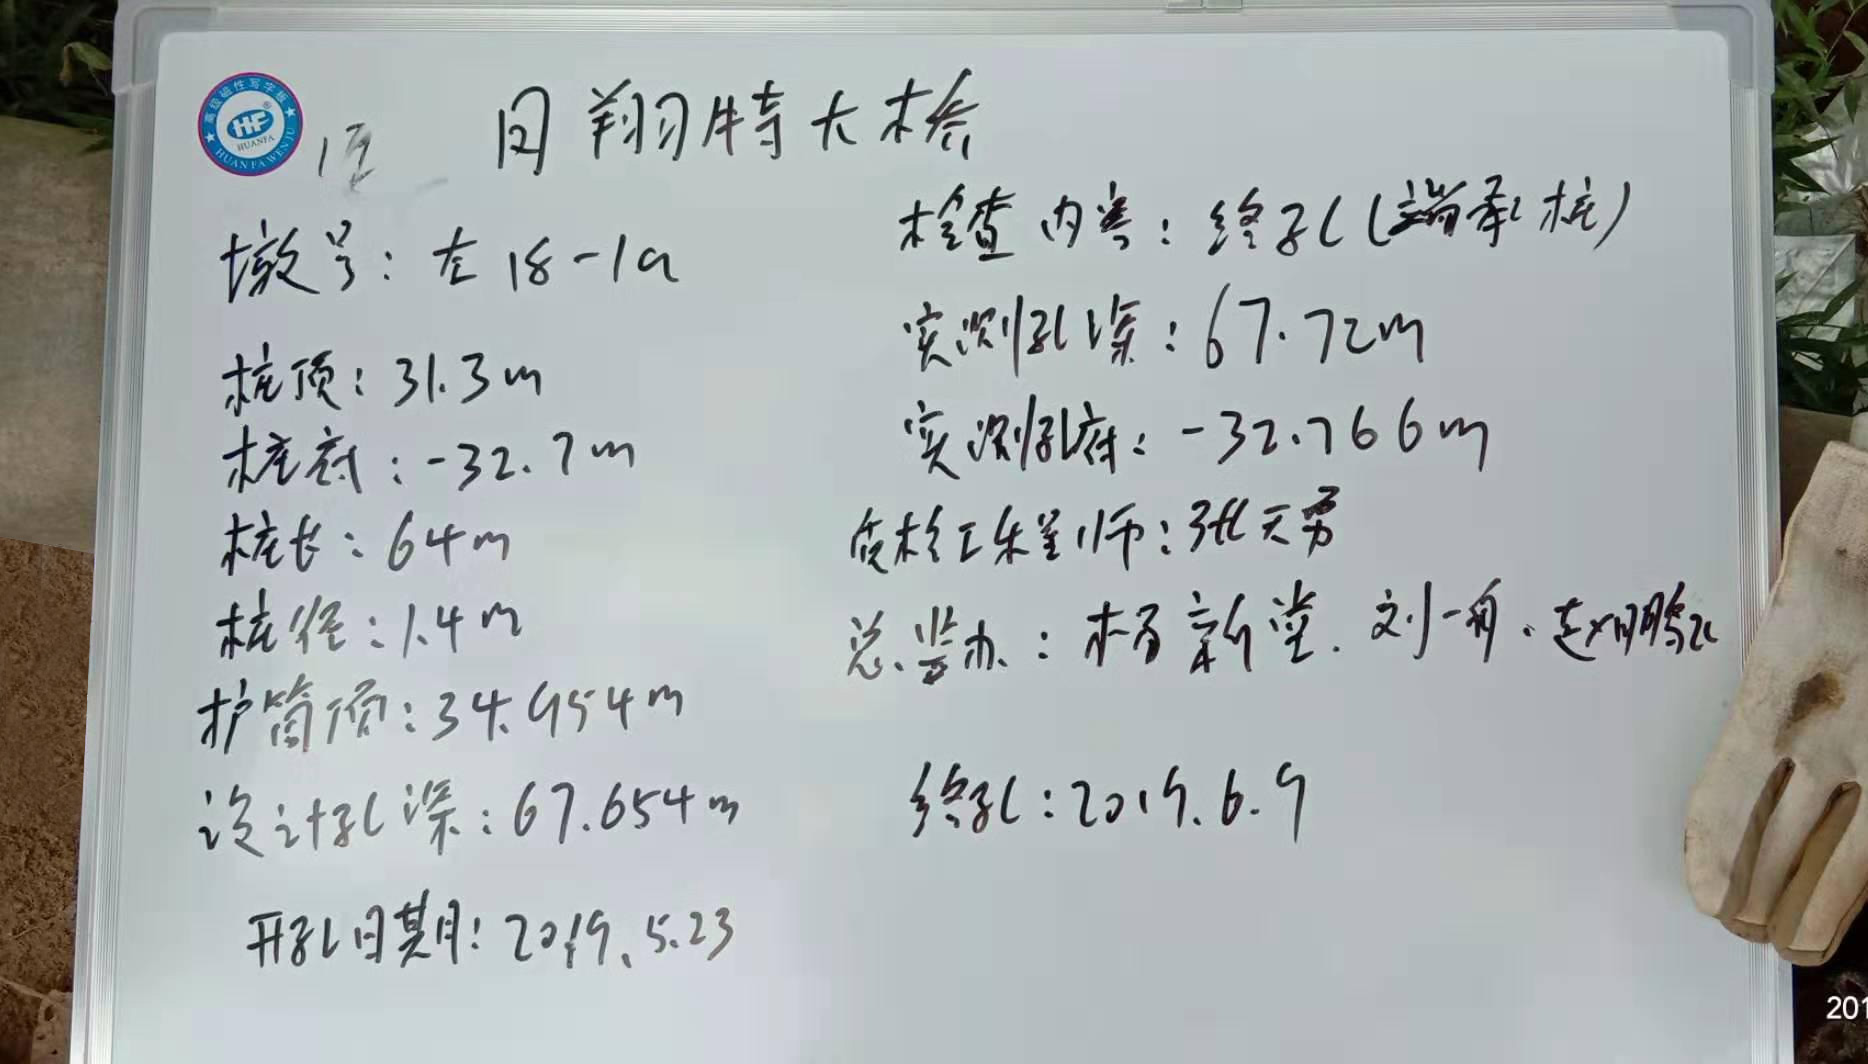 高级磁性写字板
HF®
HUANFA
HUAN FA WEN JU
同翔特大桥
墩号：左18-1a
桩顶：31.3m
桩底：-32.7m
桩长：64m
桩径：1.4m
护筒顶：34.954m
设计孔深：67.654m
开孔日期：2019.5.23
检查内容：终孔（端承桩）
实测孔深：67.72m
实测孔底：-32.766m
质检工程师：张天勇
总监办：杨新堂、刘一舟、赵鹏
终孔：2019.6.9
201